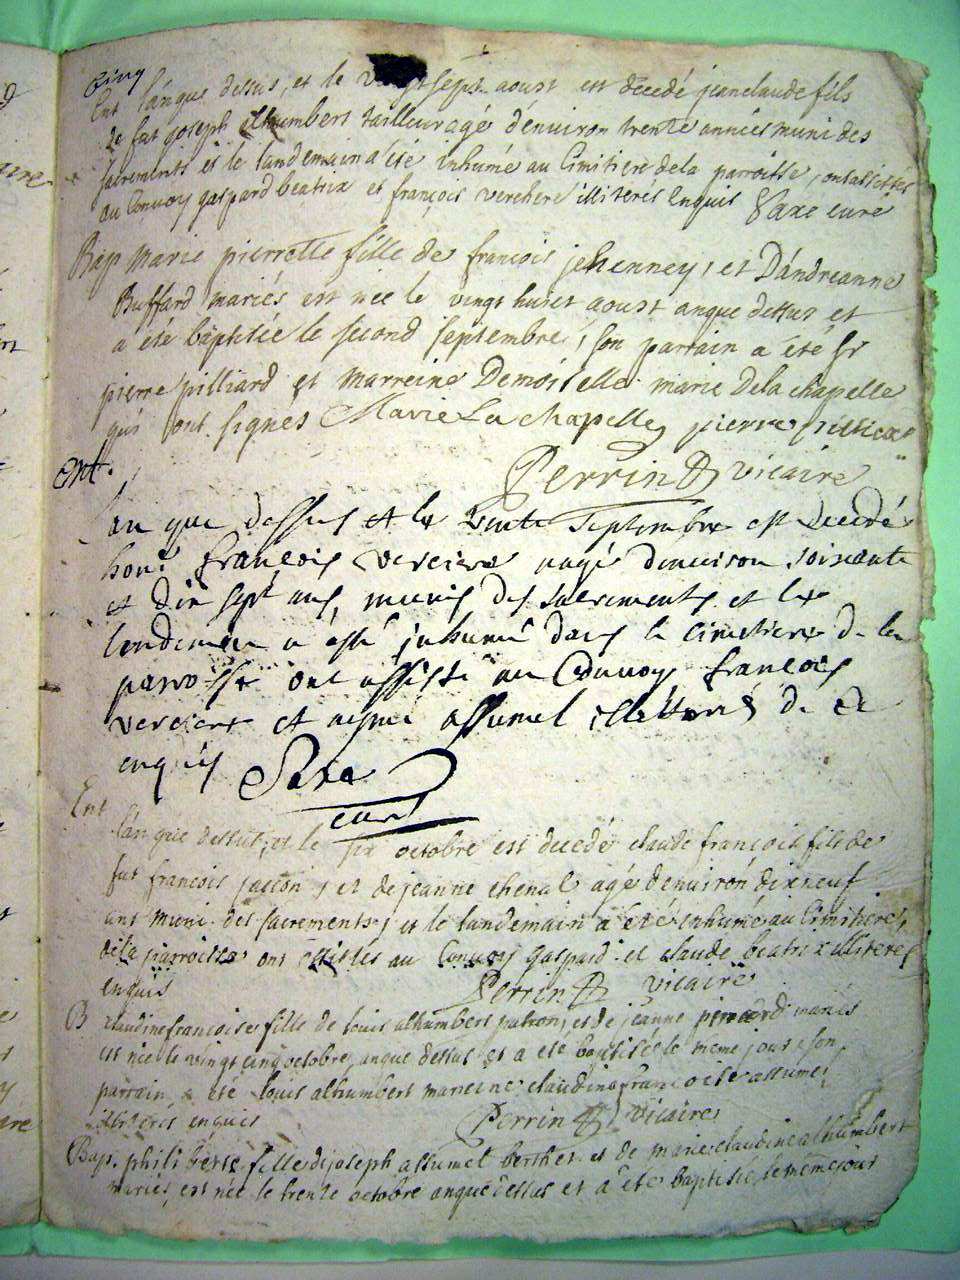 cinq
Ent lánque dessus, et le vingt sept aoust est décedé jeanclaude fils
de fut joseph althumbert tailleur agé d'environ trente années muni des
sacrements et le landemain a été inhumé au cimitiere dela parroisse, ont assistés
au convoy gaspard beatrix et françois verchere illiterés enquis Saxe curé
Bap marie pierrette fille de francois jehenney, et D'andreanne
Buffard mariés est née le vingt huict aoust anque dessus et
a été baptisée le second septembre, son parrain a été Sr
pierre pilliard et marreine Demoiselle marie dela chapelle
qui ont signés Marie La chapelle pierre
Perrin vicaire
ent.
lan que dessus et le trente septembre est decedé
hont francois verciere aagé denuiron soixante
et dix sept ans, munis des sacrements et le
lendemain a esté inhumé dans le cimetiere de la
parroisse ont assisté au Convoy francois
verciere et aimé assumel illitterés de ce
enquis Saxe
curé
Ent
lán que dessus, et le six octobre est decedé claude francois fils de
fut francois jaccon, et de jeanne chenal agé denviron dixneuf
ans muni des sacrements, et le landemain a été inhumé au cimitiere,
dela parroisse ont assistés au convoy gaspard et claude beatrix illiteres
enquis Perrin vicaire
B claudinefrancoise fille de louis althumbert patron, et de jeanne pirrard mariés
est née le vingt cinq octobre, anque dessus et a été baptisée le meme jour, son
parrain a été louis althumbert marreine claudine francoise assumel
illiterés enquis Perrin vicaire
Bap. philiberte fille dejoseph assumel berthet et de marie claudine althumbert
mariés, est née le trente octobre anque dessus et a été baptisée le même jour